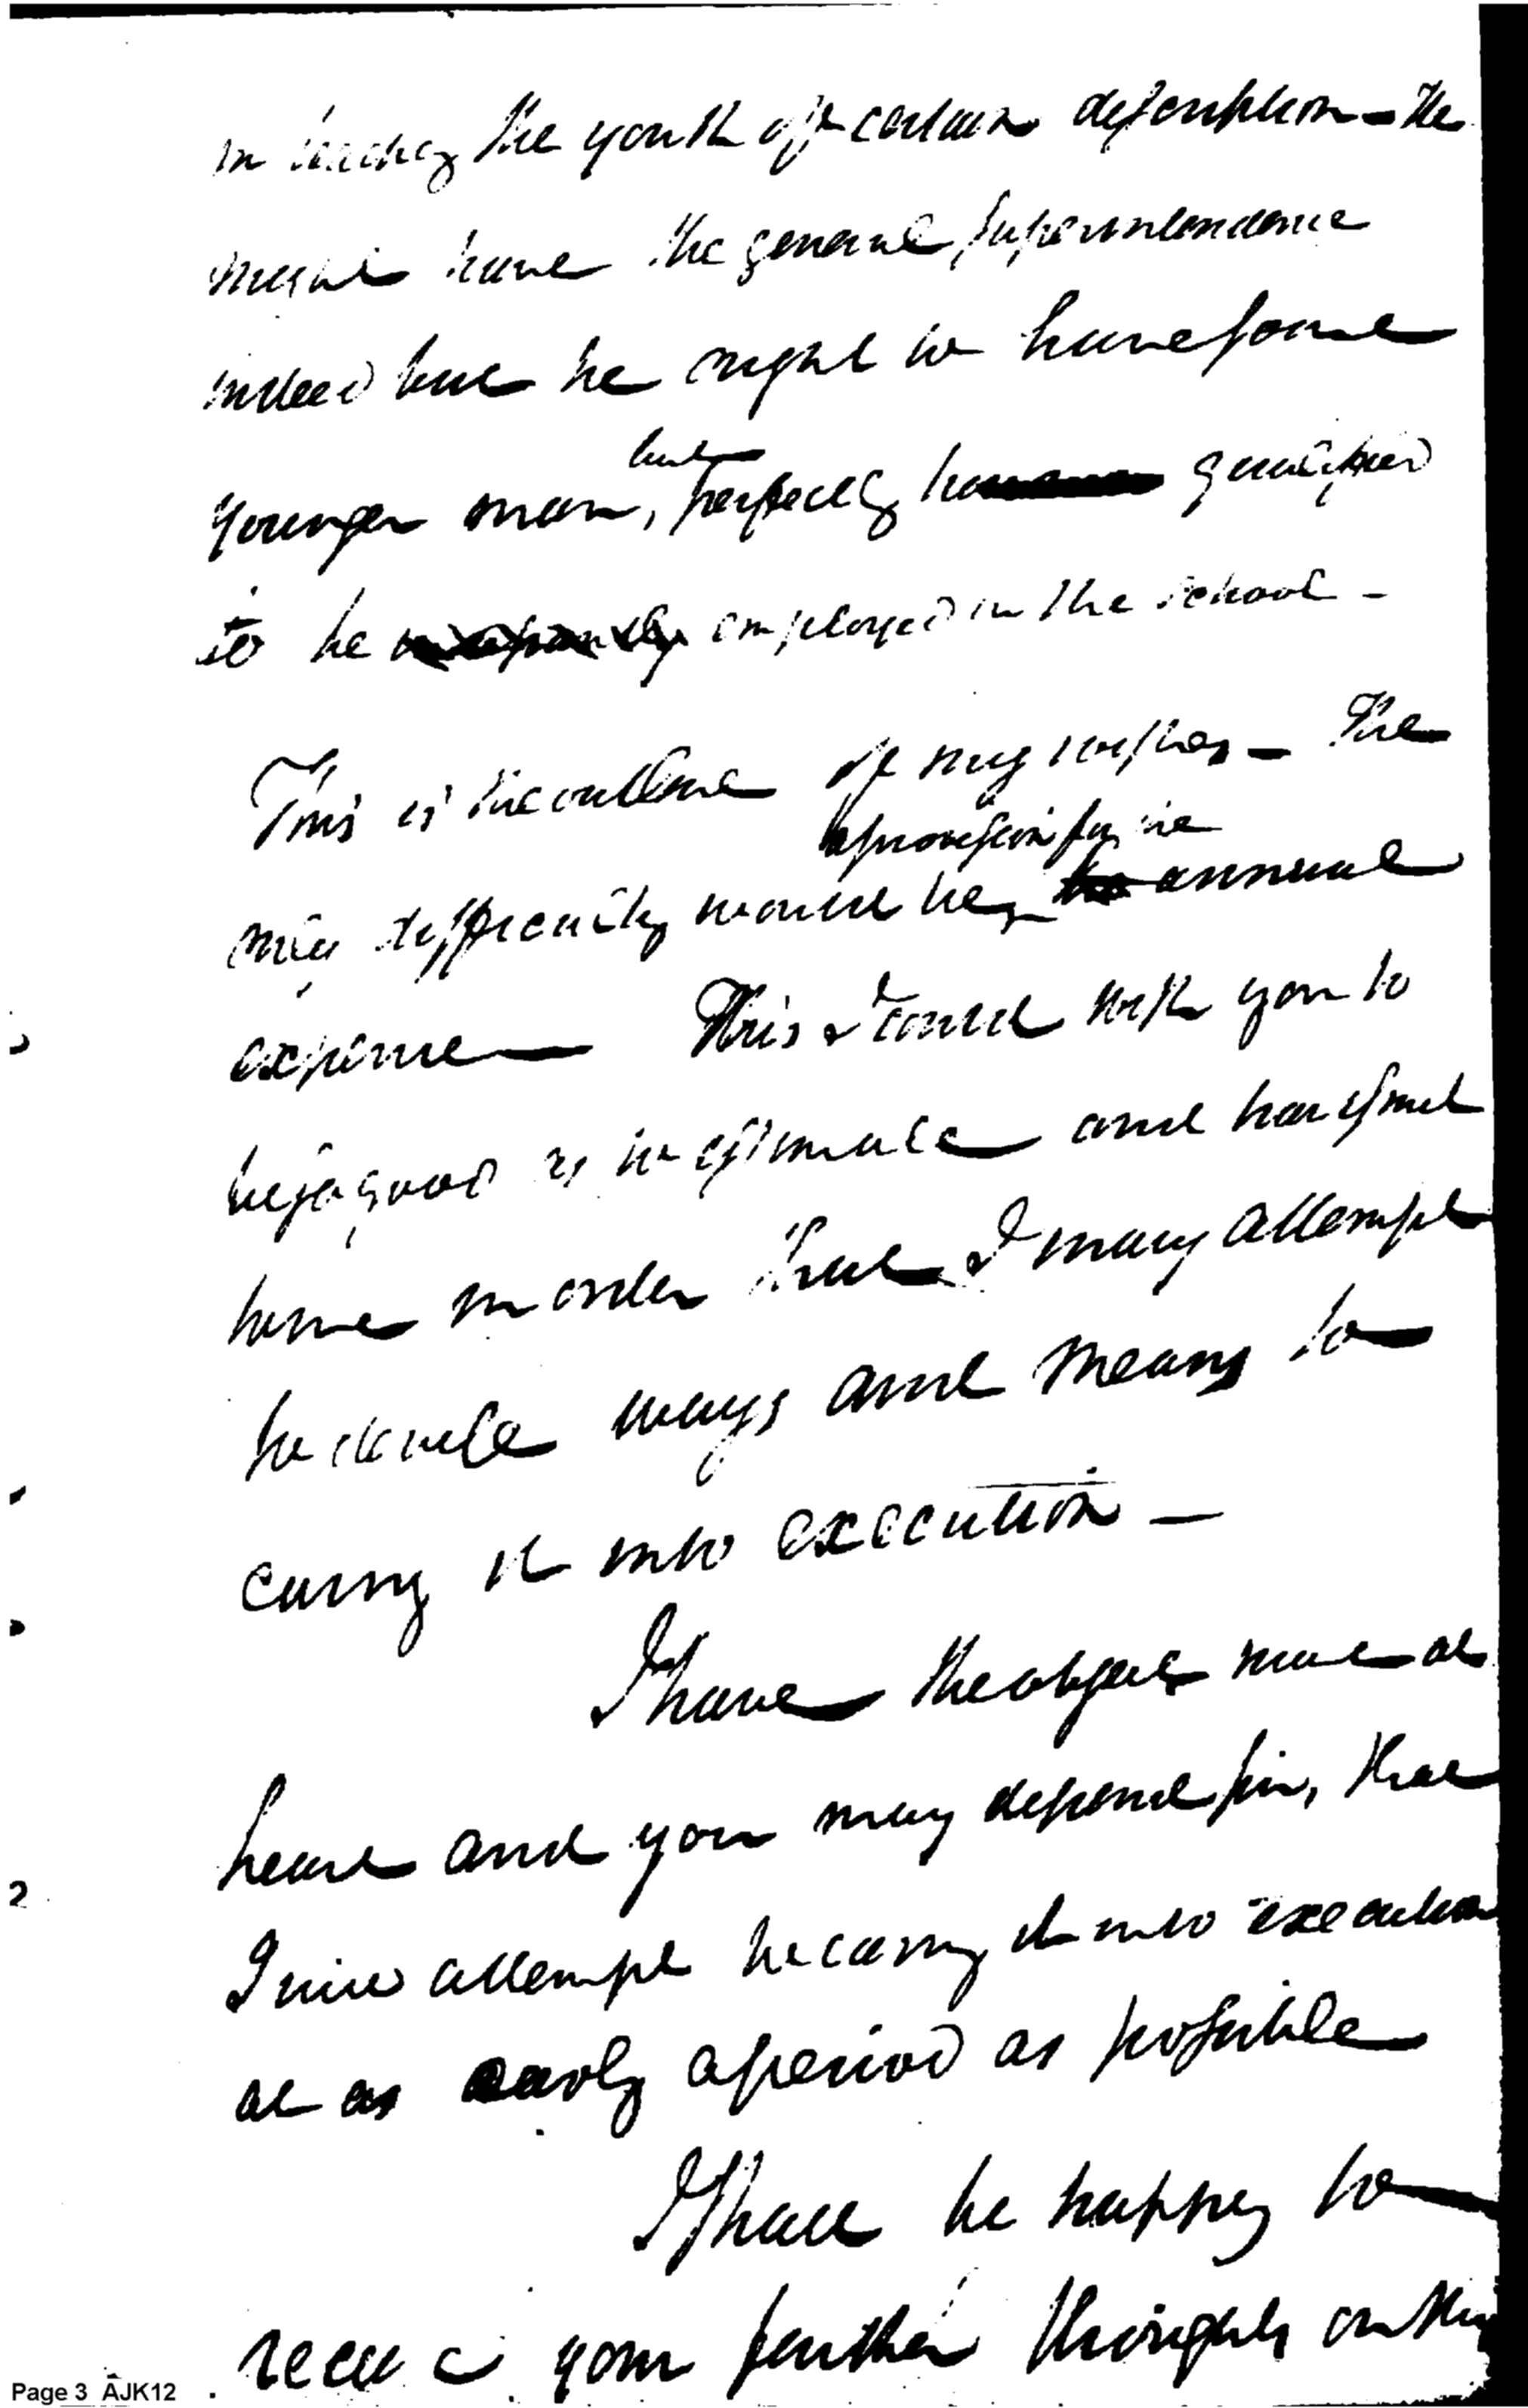 in teaching the youth of a certain description - He
might have the general superintendence
indeed but he ought to have some
but
younger man, perfectly qualified
to be employed in the school -
This is the outline of my wishes - The
a provision for the
only difficulty would be, annual
expense - This I could wish you to
be so good as to estimate and transmit
home in order that I may attempt
to devise ways and means to
carry it into execution -
I have the object much at
heart and you may depend for, that
I will attempt to carry it into execution
at as early a period as possible
I shall be happy to
receive your further thoughts on this
Page 3 AJK12
2